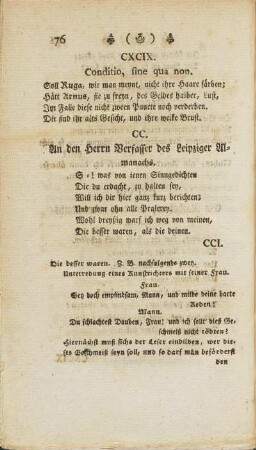 76 ❦ ( ❦ ) ❦
CXCIX.
Conditio, sine qua non.
Soll Ruga, wie man meynt, nicht ihre Haare färben;
Hätt Armus, sie zu freyn, des Geldes halber, Lust,
Im Falle diese nicht zween Puncte noch verderben.
Die sind ihr alts Gesicht, und ihre welke Brust.
CC.
An den Herrn Verfasser des Leipziger Al-
manachs.
S = ! was von jenen Sinngedichten
Die du erdacht, zu halten sey,
Will ich dir hier ganz kurz berichten:
Und zwar ohn alle Praserey.
Wohl dreyßig warf ich weg von meinen,
Die besser waren, als die deinen.
CCI.
Die besser waren. Z. B. nachfolgends zwey.
Unterredung eines Kunstrichters mit seiner Frau.
Frau.
Sey doch empfindsam, Mann, und milde deine harte
Reden!
Mann.
Du schlachtest Dauben, Frau! und ich sollt dies Ge-
schmeiß nicht tödten?
Hiernächst muß sichs der Leser einbilden, wer die-
ses Geschmeiß seyn soll; und so darf man besörderst
den